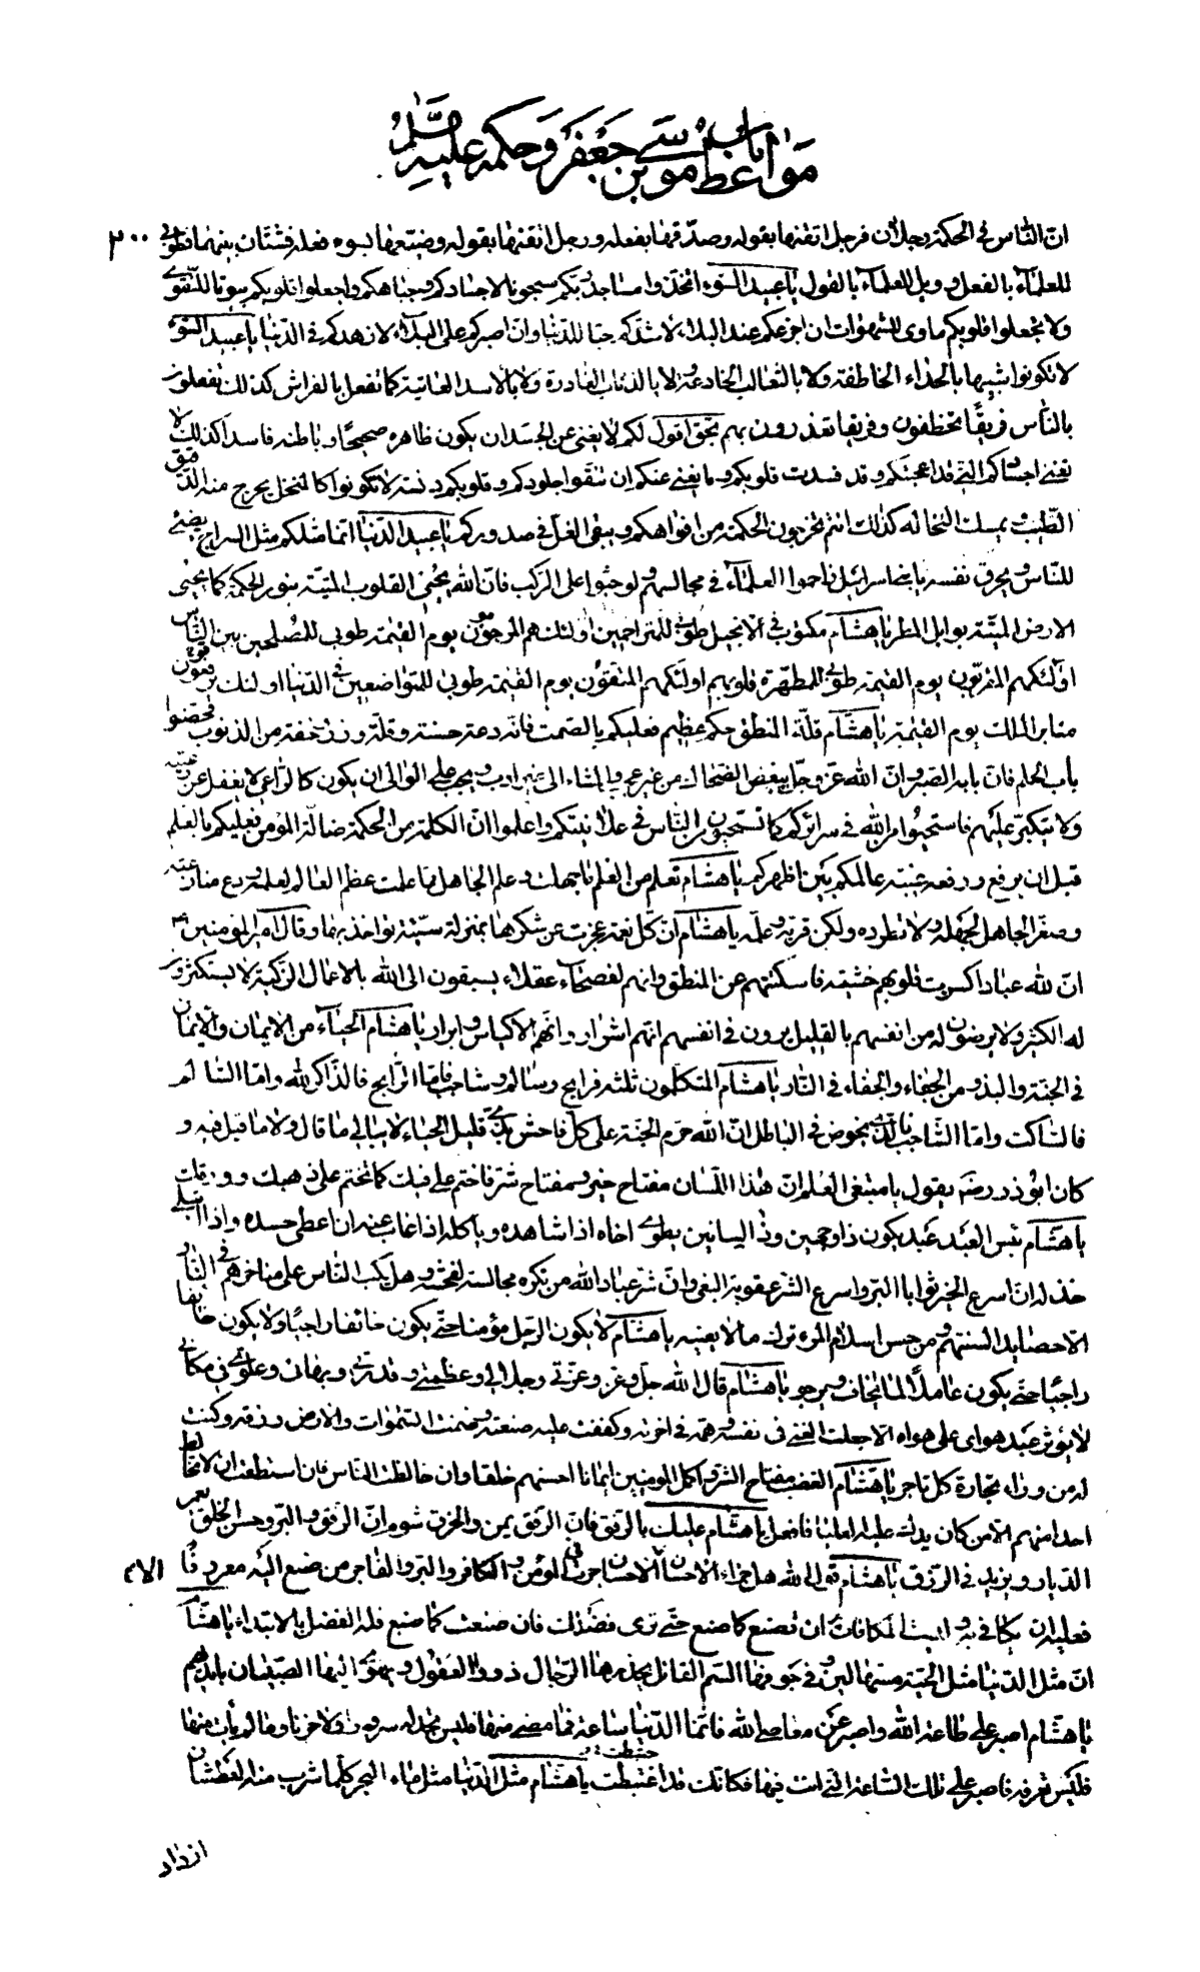 باب مواعظ موسى بن جعفر وحكمه عليه السلم
٢٠٠
انّ النّاس في الحكمة رجلان فرجل اتقنها بقوله وصدّقها بفعله ورجل اتقنها بقوله وضيّعها بسوء فعله فشتّان بينهما فطوبى
للعلمآء بالفعل وويل للعلمآء بالقول يا عبيد السّوء اتّخذوا مساجد ربّكم سجونا لاجسادكم وجباهكم واجعلوا قلوبكم بيوتا للتّقوى
ولا تجعلوا قلوبكم ماوى للشهوات ان اجزعكم عند البلاء لاشدّكم حبّا للدّنيا وانّ اصبركم على البلآء لازهدكم في الدّنيا يا عبيد السّوء
لا تكونوا شبيها بالحداء الخاطفة ولا بالثعالب الخادعة ولا بالذئاب الغادرة ولا بالاسد العاتية كما تفعل بالفراس كذلك تفعلون
بالنّاس فريقًا تخطفون وفريقا تغدرون بهم بحقّ اقول لكم لا يغنى عن الجسد ان يكون ظاهره صحيحًا وباطنه فاسدا كذلك لا
تغنى اجسادكم الّتي قد اعجبتكم وقد فسدت قلوبكم وما يغنى عنكم ان تنقّوا جلودكم وقلوبكم دنسة لا تكونوا كالمنخل يخرج منه الدّقيق
الطّيّب ويمسك النخالة كذلك انتم تخرجون الحكمة من افواهكم ويبقى الغلّ في صدوركم يا عبيد الدّنيا انّما مثلكم مثل السراج يضيئ
للنّاس ويحرق نفسه يا بنى اسرائيل زاحموا العلمآء في مجالسهم ولو جثوا على الركب فانّ الله يحيى القلوب الميّتة بنور الحكمة كما يحيى
الارض الميّتة بوابل المطر يا هشام مكتوب في الانجيل طوبى للمتراحمين اولئك هم المرحومون يوم القيمة طوبى للمصلحين بين النّاس
اولئك هم المقرّبون يوم القيمة طوبى للمطهّرة قلوبهم اولئك هم المتّقون يوم القيمة طوبى للمتواضعين في الدّنيا اولئك يرتقون
منابر الملك يوم القيمة يا هشام قلّة المنطق حكم عظيم فعليكم بالصمت فانّه دعة حسنة وقلّة وزر وخفّة من الذنوب فحصّنوا
باب الحلم فانّ بابه الصّبر وانّ الله عزّ وجلّ يبغض الضحّاك من غير عجب والمشّاء الى غير ادب ويجب على الوالى ان يكون كالرّاعي لا يغفل عن رعيّته
ولا يتكبّر عليهم فاستحيوا من الله في سرائركم كما تستحيون من النّاس في علانيتكم واعلموا انّ الكلمة من الحكمة ضالّة المؤمن فعليكم بالعلم
قبل ان يرفع ورفعه غيبة عالمكم بين اظهركم يا هشام تعلّم من العلم ما جهلت وعلّم الجاهل ممّا علمت عظّم العالم لعلمه ودع منازعته
وصغّر الجاهل لجهله ولا تطرده ولكن قرّبه وعلّمه يا هشام انّ كلّ نعمة عجزت عن شكرها بمنزلة سيّئة تؤاخذ بها وقال امير المؤمنين
انّ لله عبادا كسرت قلوبهم خشيته فاسكتتهم عن المنطق وانّهم لفصحاء عقلاء يستبقون الى الله بالاعمال الزّكية لا يستكثرون
له الكثير ولا يرضون له من انفسهم بالقليل يرون في انفسهم انّهم اشرار وانّهم لاكياس وابرار يا هشام الحيآء من الايمان والايمان
في الجنّة والبذاء من الجفاء والجفاء في النّار يا هشام المتكلّمون ثلثة فرابح وسالم وشاجب فامّا الرّابح فالذّاكر لله وامّا السّالم
فالسّاكت وامّا الشّاجب فالّذى يخوض في الباطل انّ الله حرّم الجنّة على كل فاحش بذى قليل الحياء لا يبالى ما قال ولا ما قيل فيه و
كان ابو ذر رضه يقول يا مبتغى العلم انّ هذا اللّسان مفتاح خير ومفتاح شرّ فاختم على فيك كما تختم على ذهبك وورقك
يا هشام بئس العبد عبد يكون ذا وجهين وذا لسانين يطرى اخاه اذا شاهده وياكله اذا غاب عنه ان اعطى حسده واذا ابتلى
خذله انّ اسرع الخير ثوابا البرّ واسرع الشرّ عقوبة البغى وانّ شرّ عباد الله من تكره مجالسته لفحشه وهل يكبّ النّاس على مناخرهم في النّار
الا حصايد السنتهم ومن حسن اسلام المرء ترك ما لا يعنيه يا هشام لا يكون الرّجل مؤمنا حتّى يكون خائفا راجيًا ولا يكون خائفا
راجيًا حتّى يكون عاملًا لما يخاف ويرجو يا هشام قال الله جلّ وعزّ وعزّتى وجلالى وعظمتى وقدرتى وبهائى وعلوّى في مكانى
لا يؤثر عبد هواى على هواه الا جعلت الغنى في نفسه وهمّه في اخرته وكففت عليه صنعته وضمنت السّموات والارض رزقه وكنت
له من وراء تجارة كل تاجر يا هشام الغضب مفتاح الشرّ واكمل المؤمنين ايمانا احسنهم خلقا وان خالطت النّاس فان استطعت ان لا تخالط
احدا منهم الّا من كان يدك عليه العليا فافعل يا هشام عليك بالرّفق فانّ الرّفق يمن والخرق شوم انّ الرّفق والبرّ وحسن الخلق يعمر
الدّيار ويزيد في الرّزق يا هشام قول الله هل جزاء الاحسان الّا الاحسان جرت في المؤمن والكافر والبرّ والفاجر من صنع اليه معروف
فعليه ان يكافى به وليست المكافاة ان تصنع كما صنع حتّى ترى فضلك فان صنعت كما صنع فله الفضل بالابتداء يا هشام
انّ مثل الدّنيا مثل الحيّة مسّها ليّن وفي جوفها السّم القاتل يحذرها الرّجال ذووا العقول ويهوى اليها الصّبيان بايديهم
يا هشام اصبر على طاعة الله واصبر عن معاصى الله فانّما الدّنيا ساعة فما مضى منها فليس تجد له سرورا ولا حزنا وما لم يأت منها
فليس تعرفه فاصبر على تلك السّاعة الّتى انت فيها فكانّك قد اغتبطت يا هشام مثل الدّنيا مثل ماء البحر كلّما شرب منه العطشان
ازداد